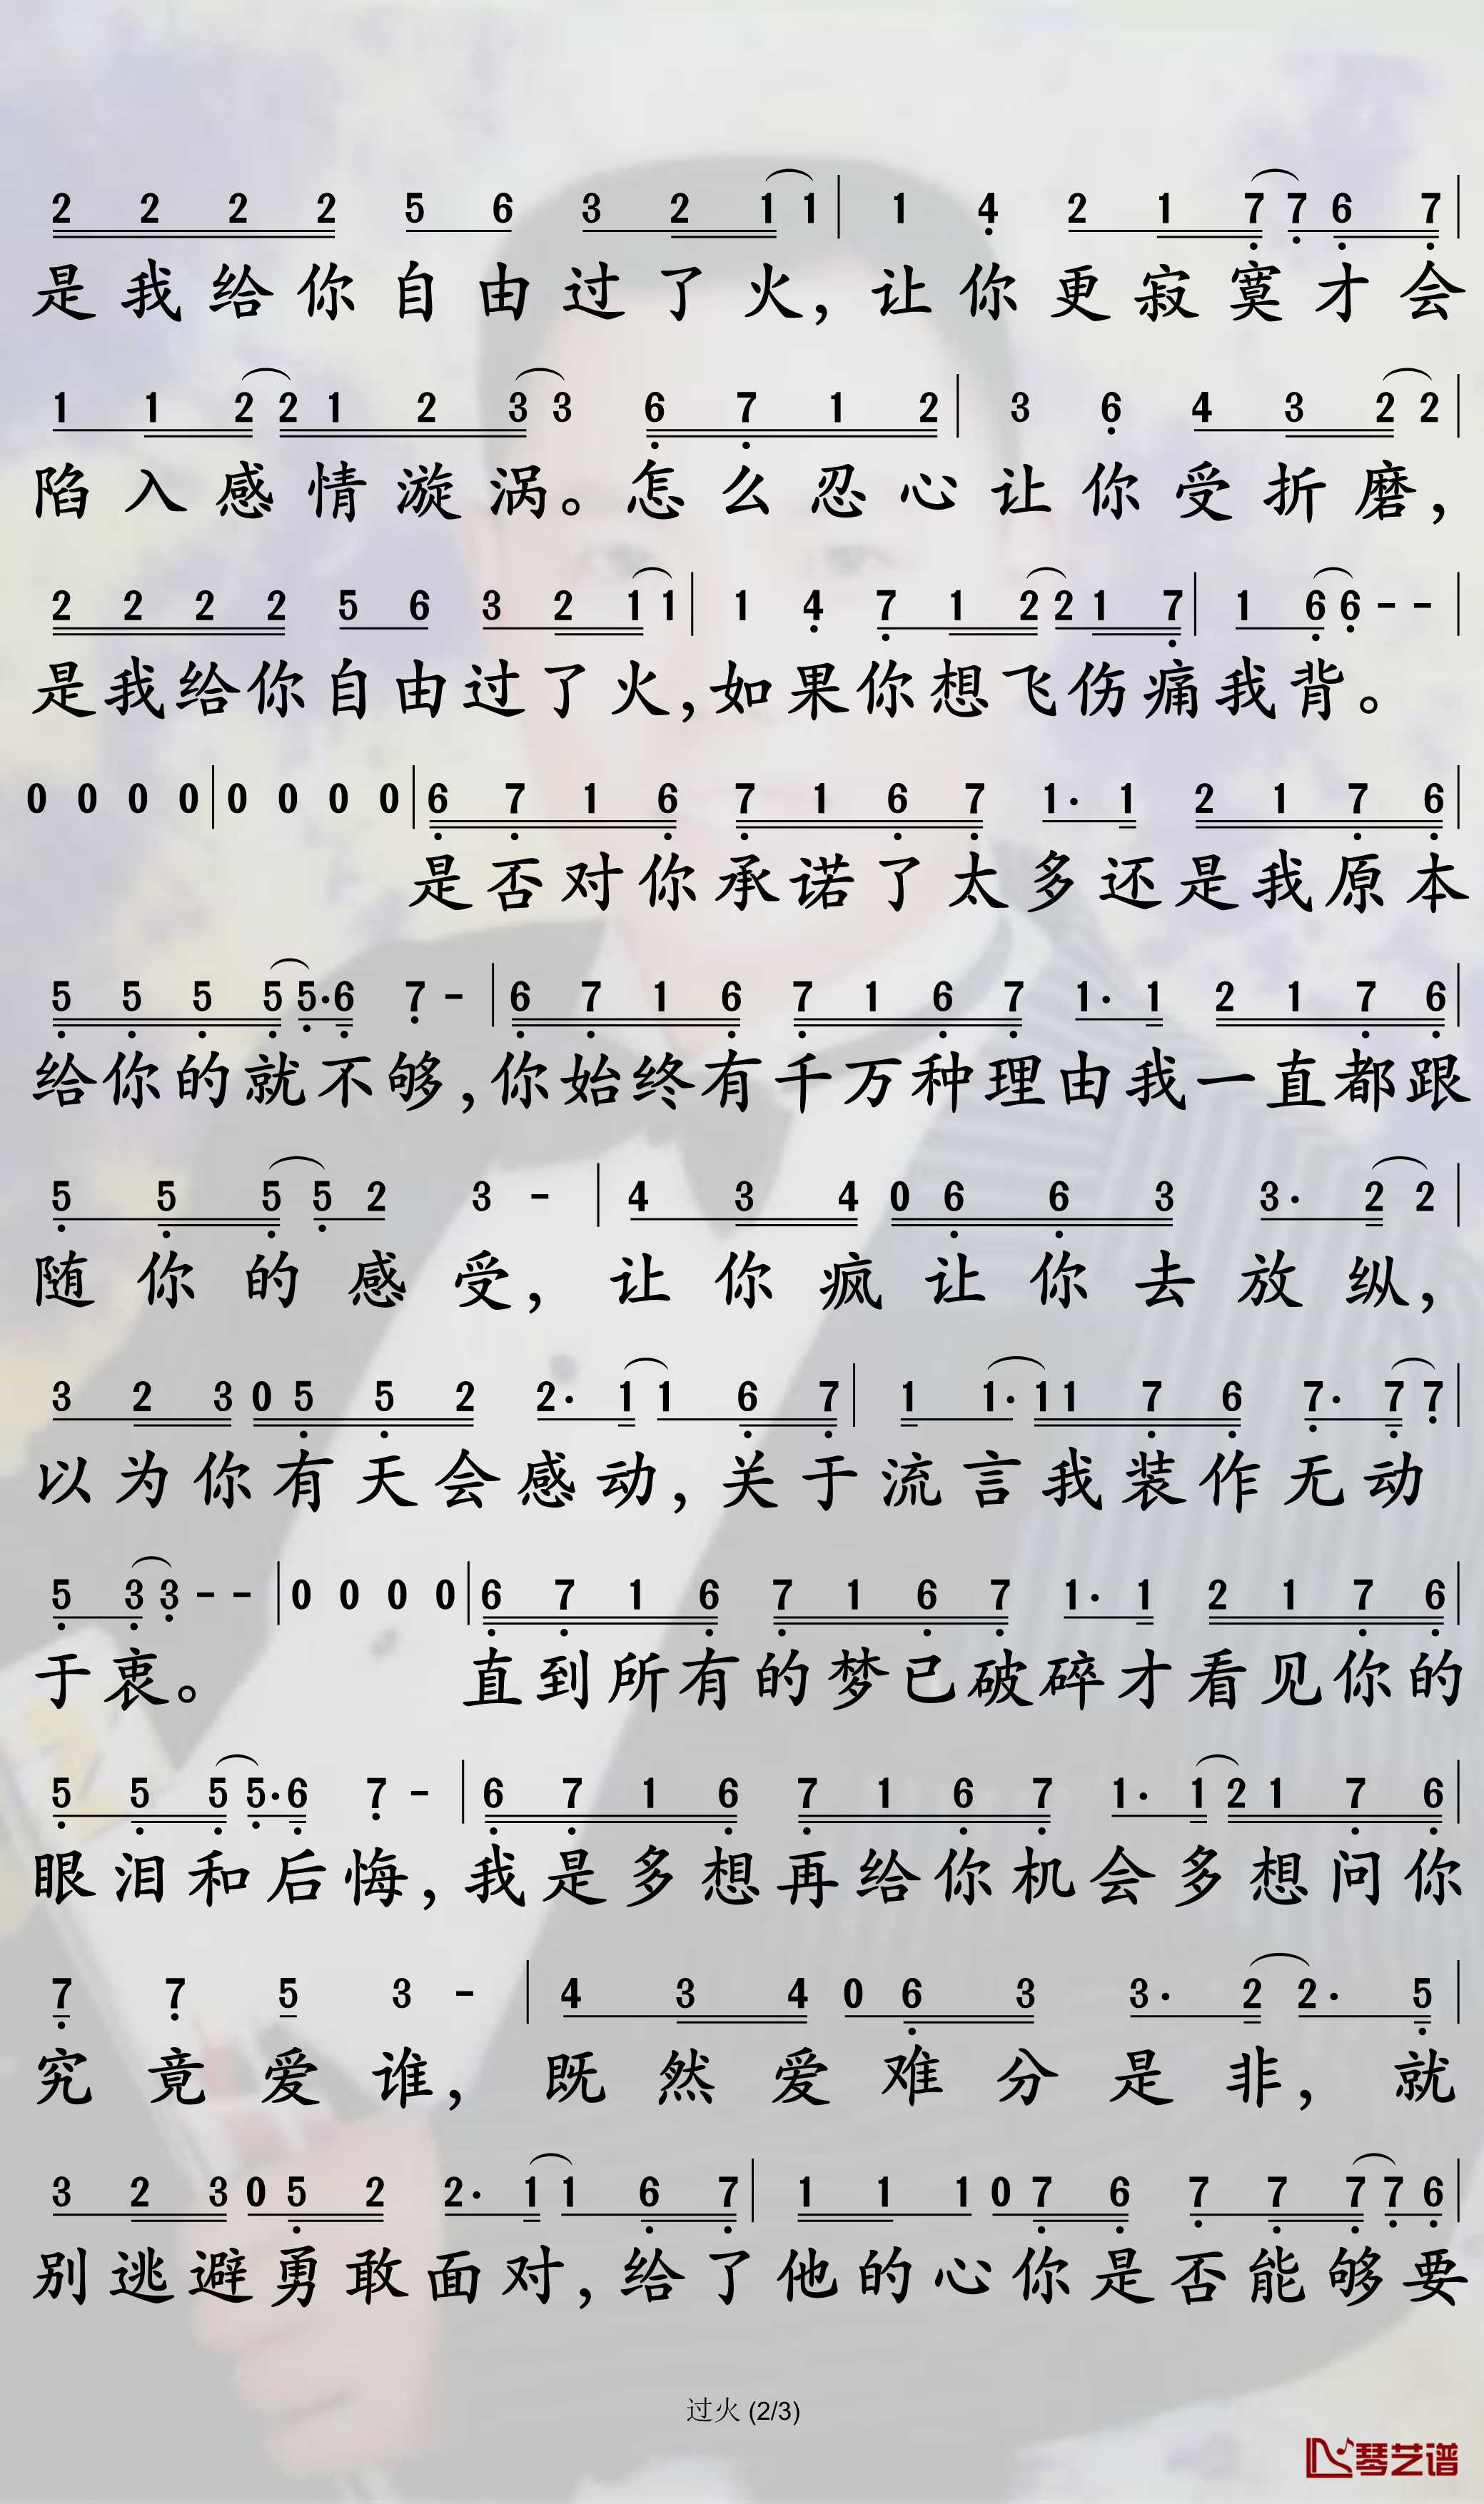 2 2 2 2 5 6 3 2 1 1 | 1 4 2 1 7 7 6 7 |
是我给你自由过了火，让你更寂寞才会
1 1 2 2 1 2 3 3 6 7 1 2 | 3 6 4 3 2 2 |
陷入感情漩涡。怎么忍心让你受折磨，
2 2 2 2 5 6 3 2 1 1 | 1 4 7 1 2 2 1 7 | 1 6 6 - - |
是我给你自由过了火，如果你想飞伤痛我背。
0 0 0 0 | 0 0 0 0 | 6 7 1 6 7 1 6 7 1· 1 2 1 7 6 |
是否对你承诺了太多还是我原本
5 5 5 5 5·6 7 - | 6 7 1 6 7 1 6 7 1· 1 2 1 7 6 |
给你的就不够，你始终有千万种理由我一直都跟
5 5 5 5 2 3 - | 4 3 4 0 6 6 3 3· 2 2 |
随你的感受，让你疯让你去放纵，
3 2 3 0 5 5 2 2· 1 1 6 7 | 1 1· 1 1 7 6 7· 7 7 |
以为你有天会感动，关于流言我装作无动
5 3 3 - - | 0 0 0 0 | 6 7 1 6 7 1 6 7 1· 1 2 1 7 6 |
于衷。直到所有的梦已破碎才看见你的
5 5 5 5·6 7 - | 6 7 1 6 7 1 6 7 1· 1 2 1 7 6 |
眼泪和后悔，我是多想再给你机会多想问你
7 7 5 3 - | 4 3 4 0 6 3 3· 2 2· 5 |
究竟爱谁，既然爱难分是非，就
3 2 3 0 5 2 2· 1 1 6 7 | 1 1 1 0 7 6 7 7 7 7 6 |
别逃避勇敢面对，给了他的心你是否能够要
过火 (2/3)
琴艺谱